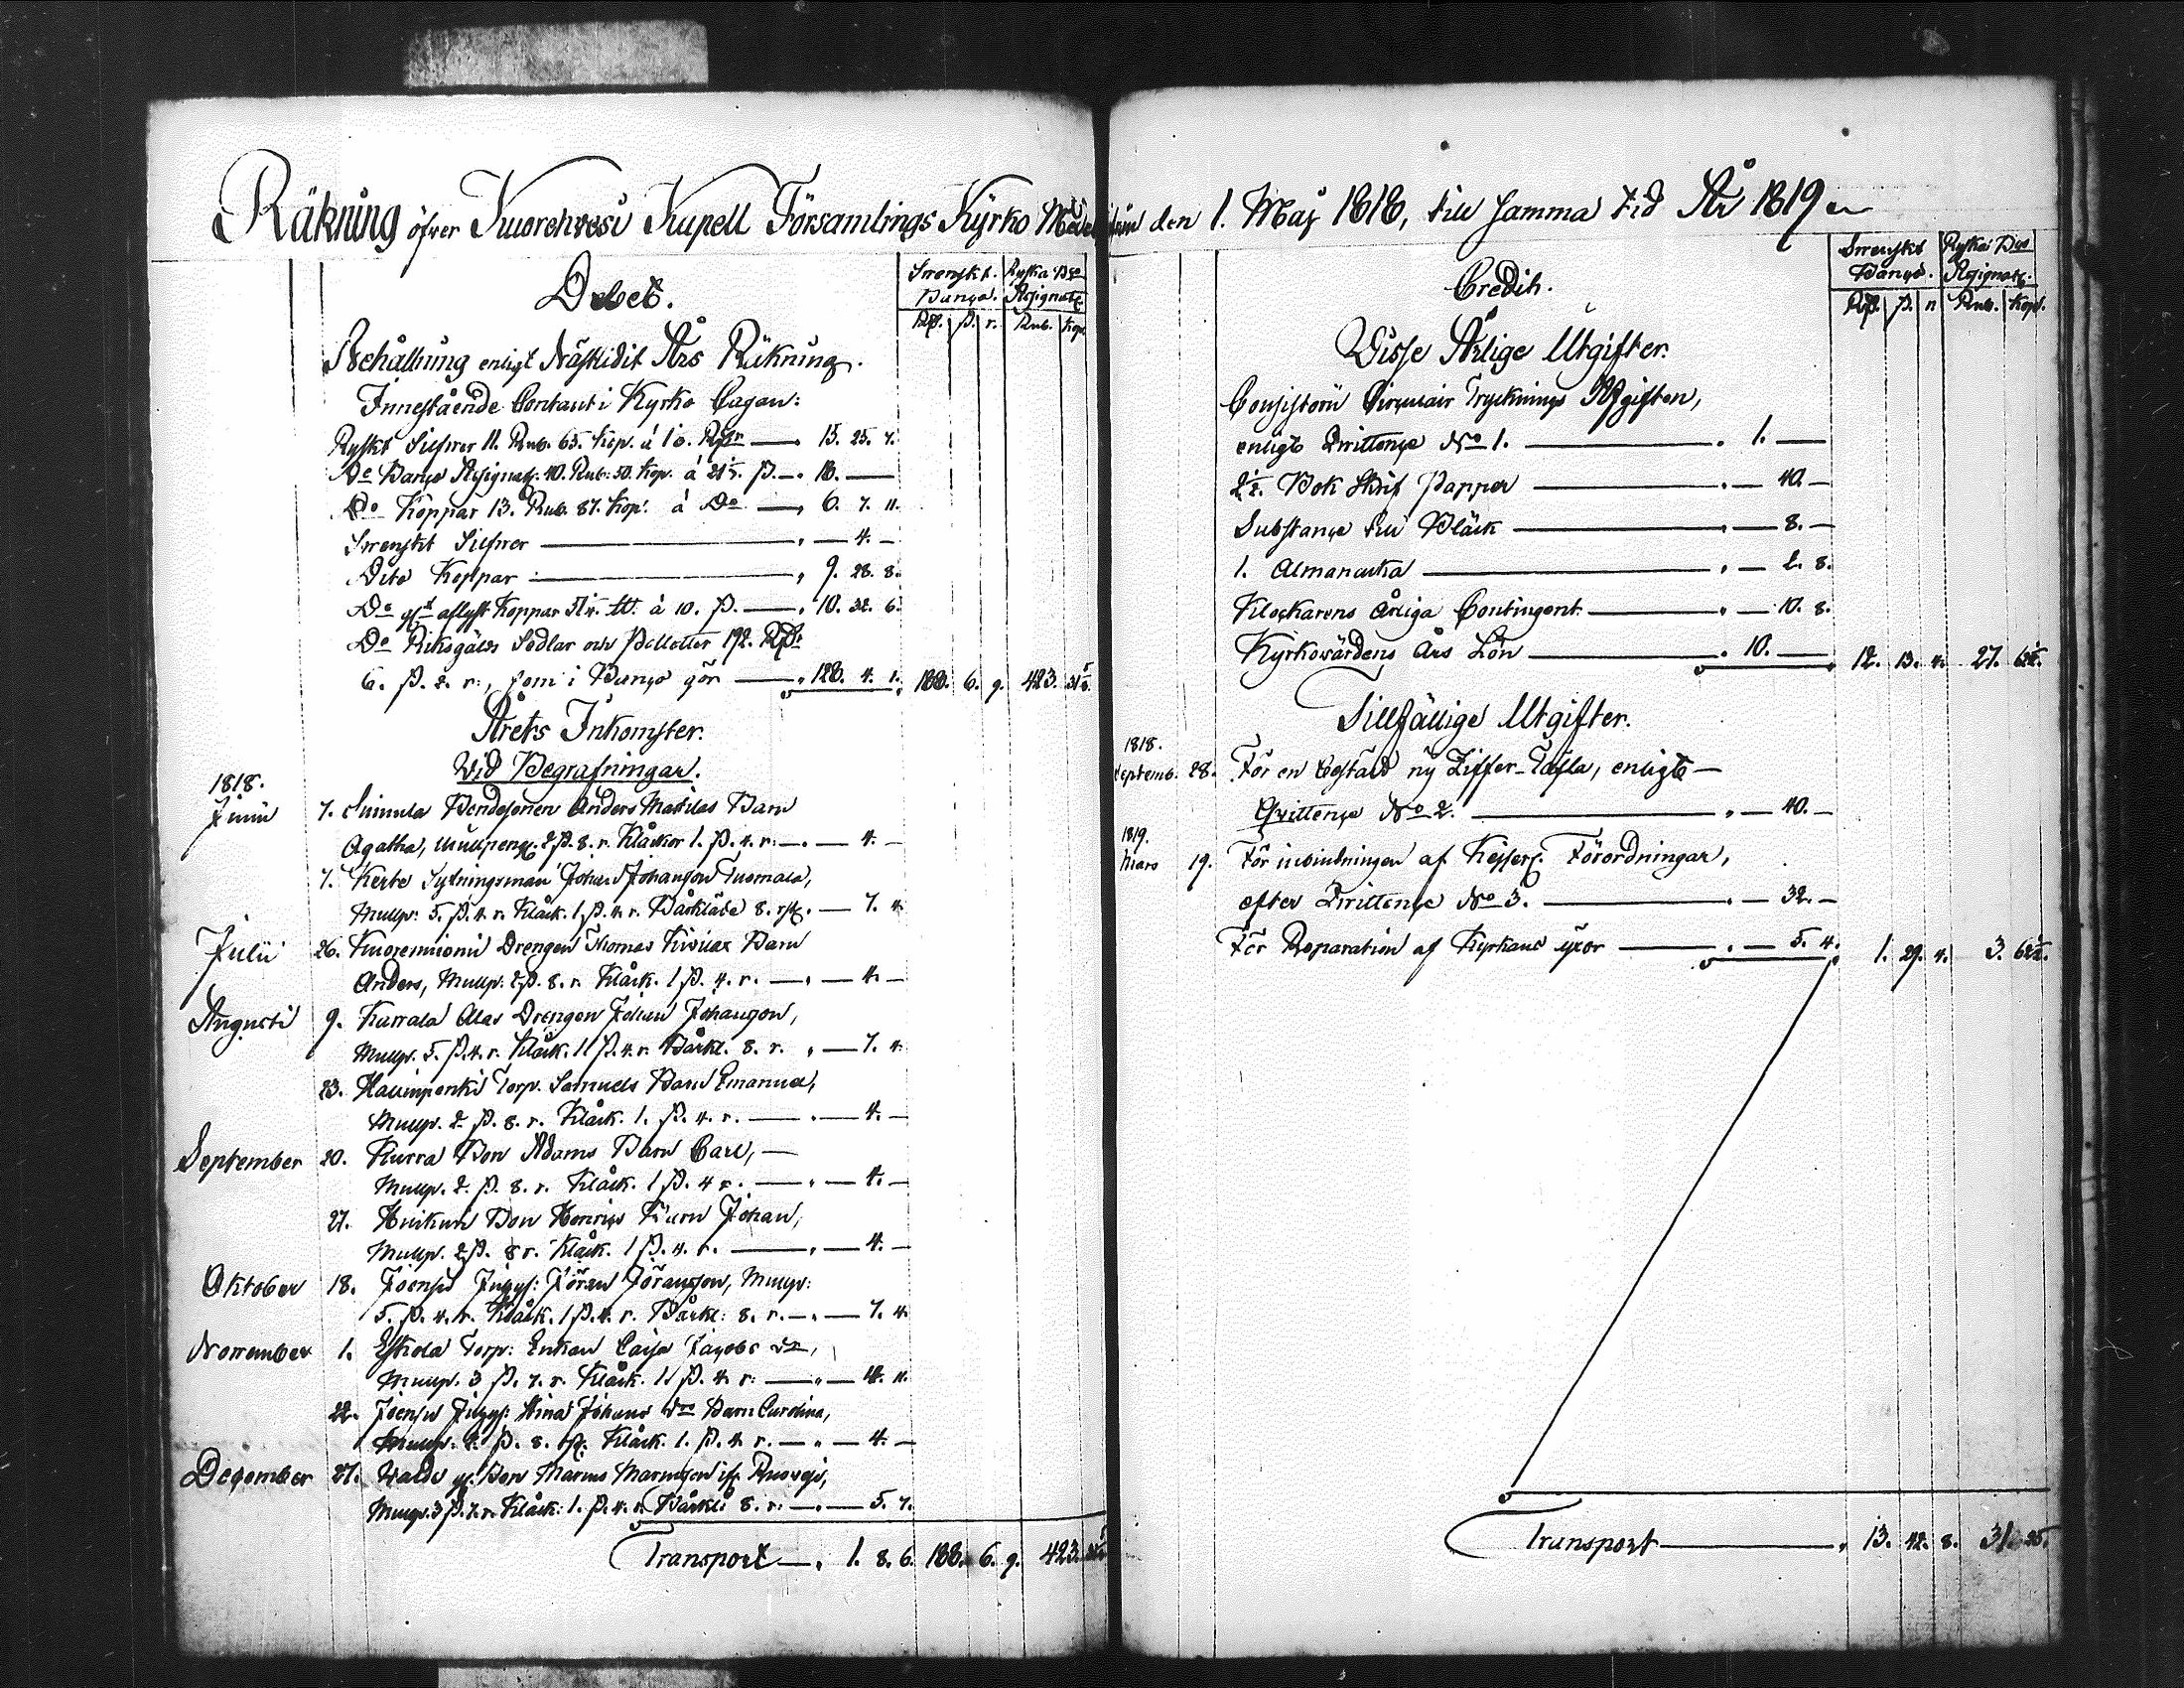 Räkning öfver Kuorehvesi Kapell Församlings Kyrko Medel ifrån den 1. Maj 1818, till samma tid År 1819
Debet.
Svenskt Banco. Ryska Bco Assignats.
Rd. ß. r. Rub. Kop.
Behållning enligt Nästledit Års Räkning.
Innestående Contant i Kyrko Cassan:
Ryskt Silfver 11. Rub. 65. Kop. à 1 15. 25. 7.
Do Banco Assignats. 40. Rub: 50. Kop. à 21 1/3. ß. 18.
Do Koppar 13. Rub. 87. Kop. à Do 6. 7. 11.
Svenskt Silfver 4.
Dito Koppar 9. 28. 8.
Do aflyst Koppar à 10. ß. 10. 32. 6.
Do Riksgälds Sedlar och Polletter 192. Rd.
6. ß. 2. r., som i Banco gör 128. 4. 1. 188. 6. 9. 423.
Årets Inkomster.
Vid Begrafningar.
1818.
Junii 7. Bondesonen Anders Matilas Barn
Agatha, Mullpeng. 2 ß. 8. r. Klåckor 1. ß. 4. r. 4.
7. Sytningsman Johan Johansson Tuomala,
Mullp: 5. ß. 4. r. Klåck. 1 ß. 4. r. Bårkläde 8. 7. 4.
Julii 26. Drengen Thomas Barn
Anders, Mullp: 2 ß. 8. r. Klåck. 1 ß. 4. r. 4.
Augusti 9. Karrala Alas Drengen Johan Johansson,
Mullp. 5. ß. 4. r. Klåck. 1 ß. 4. r. Bårkl. 8. r. 7. 4.
23. Torp. Samuels Barn Emanuel,
Mullp. 2 ß. 8. r. Klåck. 1. ß. 4. r. 4.
September 20. Kurra Bon Adams Barn Carl,
Mullp. 2. ß. 8. r. Klåck. 1 ß. 4 r. 4.
27. Bon Henrics Barn Johan,
Mullp. 2 ß. 8 r. Klåck. 1 ß. 4. r. 4.
Oktober 18. Joensu Jöran Jöransson, Mullp:
5. ß. 4. r. Klåck. 1 ß. 4. r. Bårkl: 8. r. 7. 4.
November 1. Eskola Torp: Enkan Caisa Jacobs dr,
Mullp. 3 ß. 7. r. Klåck. 1 ß. 4. r. 4. 11.
22. Joensu Johans dr Barn Carolina,
Mullp. 2. ß. 8. Klåck. 1. ß. 4. r. 4.
December 27. Bon
Mullp. 3 ß. 7. r. Klåck: 1. ß. 4. r. Bårkl: 8. r. 5. 7.
Transport 1. 8. 6. 188. 6. 9. 423.
Credit.
Svenskt Banco. Ryska Bco Assignats.
Rd. ß. r. Rub. Kop.
Visse Årlige Utgifter.
Consistorii Circulair Trycknings Afgiften,
enligt Qvittence No 1. 1.
2 1/2. Bok Skrif Papper 40.
Substance till Bläck 8.
1. Almanacka 2. 8.
Klockarens Årliga Contingent 10. 8.
Kyrkovärdens Års Lön 10. 12. 13. 4. 27. 62 1/2.
Tillfällige Utgifter.
1818.
Septemb. 28. För en bestäld ny Ziffer-Tafla, enligt
Qvittence No 2. 40.
1819.
Mars 19. För inbindningen af Kejserl. Förordningar,
efter Qvittence No 3. 32.
För Reparation af Kyrkans 5. 4. 1. 29. 4. 3. 62 1/2.
Transport 13. 42. 8. 31. 25.